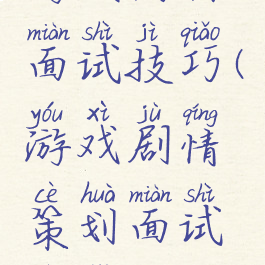 miàn shì jì qiǎo
面试技巧(
yóu xì jù qíng
游戏剧情
cè huà miàn shì
策划面试